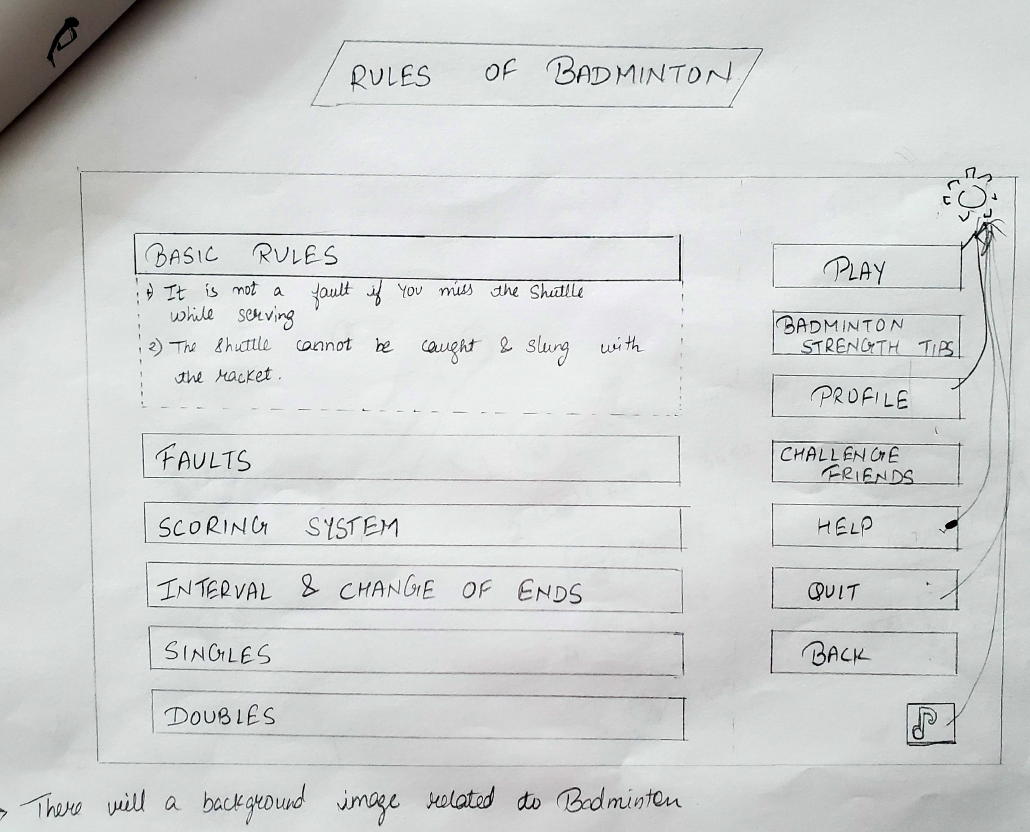 RULES OF BADMINTON
BASIC RULES
1) It is not a fault if you miss the Shuttle
while serving
2) The Shuttle cannot be caught & slung with
the racket.
FAULTS
SCORING SYSTEM
INTERVAL & CHANGE OF ENDS
SINGLES
DOUBLES
PLAY
BADMINTON
STRENGTH TIPS
PROFILE
CHALLENGE
FRIENDS
HELP
QUIT
BACK
There will a background image related to Badminton